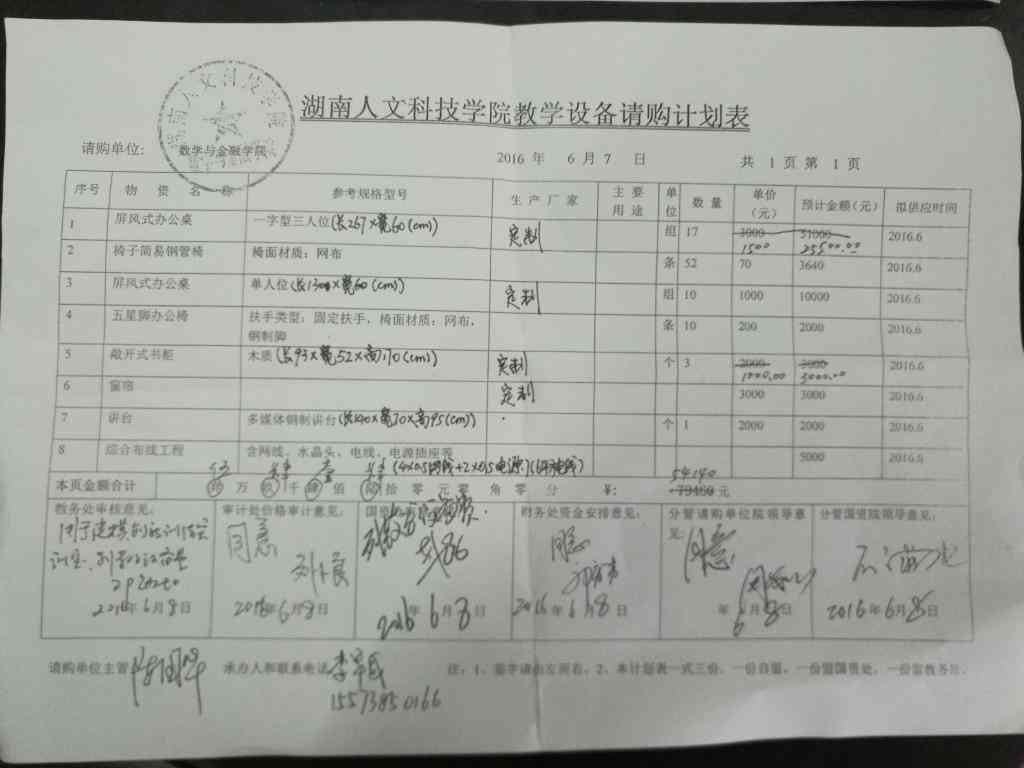 湖南人文科技学院
湖南人文科技学院教学设备请购计划表
请购单位: 数学与金融学院 2016 年 6 月 7 日 共 1 页 第 1 页
序号 物资名称 参考规格型号 生产厂家 主要用途 单位 数量 单价(元) 预计金额(元) 拟供应时间
1 屏风式办公桌 一字型三人位(长267×宽60(cm)) 定制 组 17 3000 51000 2016.6
1500 25500.00
2 椅子简易钢管椅 椅面材质:网布 条 52 70 3640 2016.6
3 屏风式办公桌 单人位 宽60(cm)) 定制 组 10 1000 10000 2016.6
4 五星脚办公椅 扶手类型:固定扶手,椅面材质:网布,钢制脚 条 10 200 2000 2016.6
5 敞开式书柜 木质(长93×宽52×高170(cm)) 定制 个 3 2016.6
1000.00 3000.00
6 窗帘 定制 3000 3000 2016.6
7 讲台 多媒体钢制讲台 宽70×高95(cm)) 个 1 2000 2000 2016.6
8 综合布线工程 含网线、水晶头、电线、电源插座等 5000 2016.6
伍 肆 壹 肆
54140
本页金额合计 万 仟 佰 拾 零 元 零 角 零 分 ¥: 79460 元
教务处审核意见: 审计处价格审计意见: 财务处资金安排意见: 分管请购单位院领导意见: 分管国资院领导意见:
同意 同意 同意
2016年6月8日 2016年6月8日 2016年6月8日 2016年6月8日 年6月8日 2016年6月8日
请购单位主管 承办人和联系电话 李军成 注:1、签字请由左而右。2、本计划表一式三份,一份自留,一份留国资处,一份留教务处。
15573850166